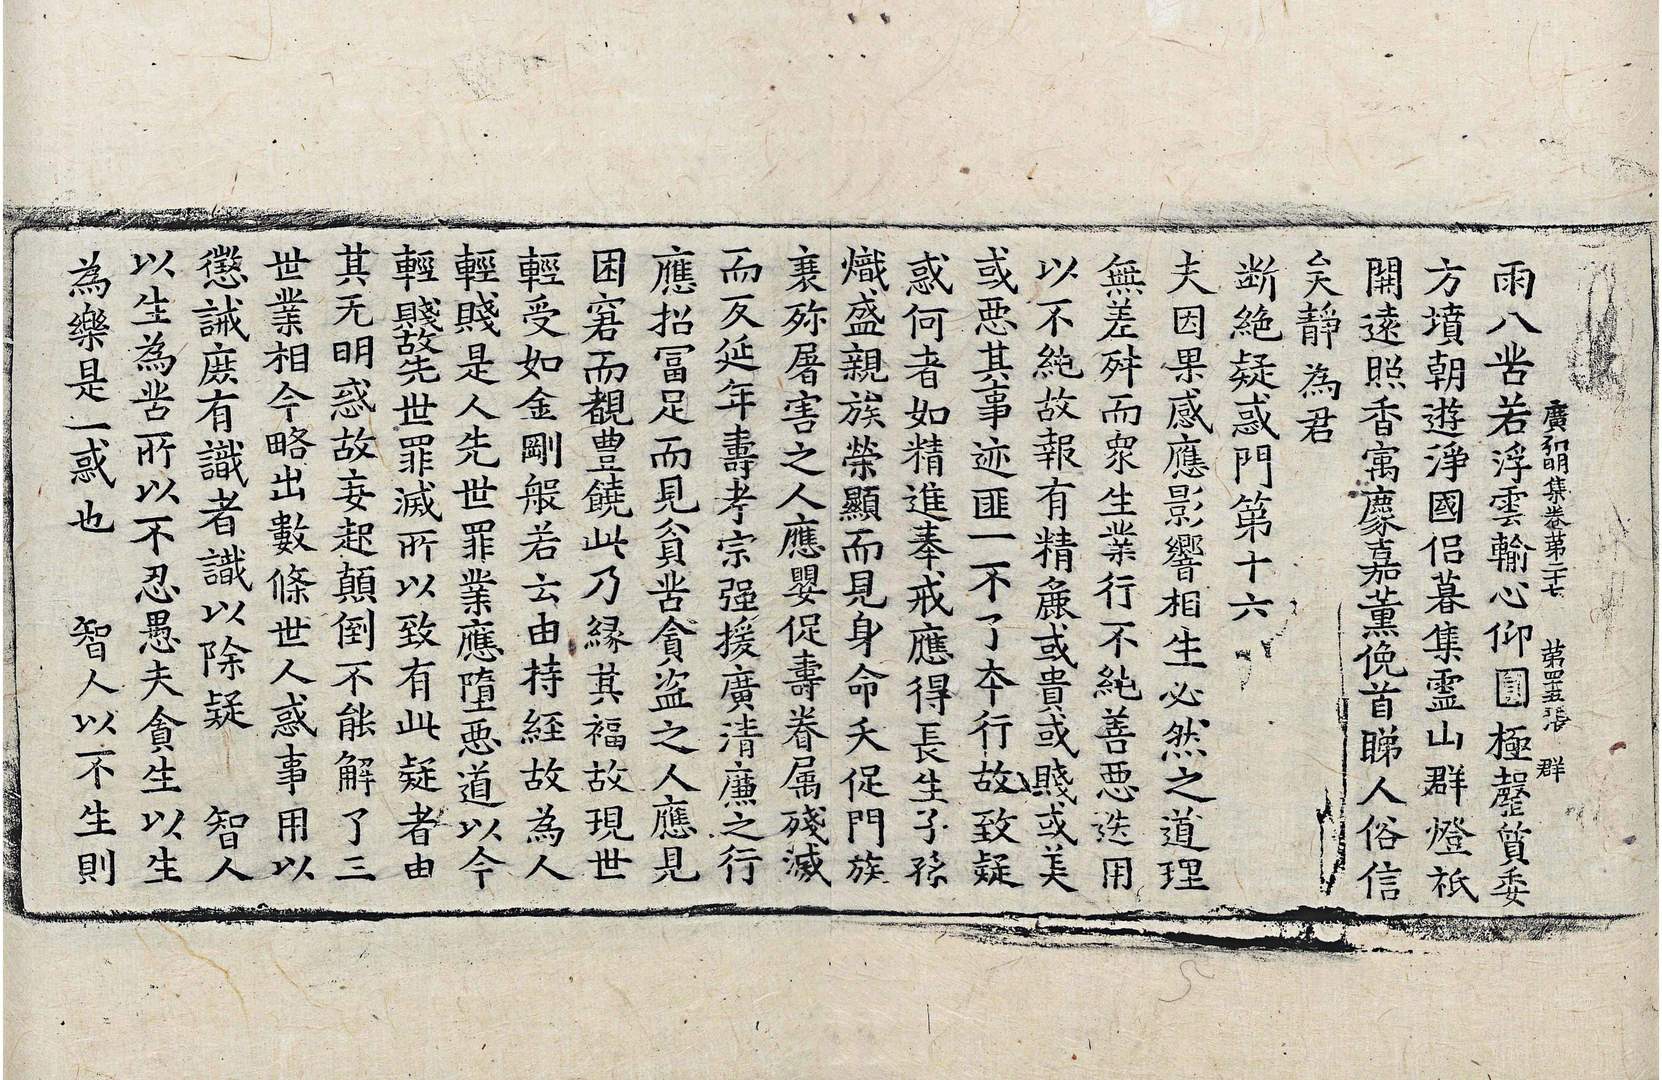 廣弘明集卷第二十七　第四十五張　群
雨八苦若浮雲輸心仰圓極罄質委
方墳朝遊淨國侶暮集靈山群燈祇
開遠照香寓麝嘉薰俛首睇人俗信
矣靜為君
断絶疑惑門第十六
夫因果感應影響相生必然之道理
無差舛而衆生業行不純善惡迭用
以不純故報有精麁或貴或賤或美
或惡其事迹匪一不了本行故致疑
惑何者如精進奉戒應得長生子孫
熾盛親族榮顯而見身命夭促門族
衰殄屠害之人應嬰促壽眷属殘滅
而反延年壽考宗强援廣清廉之行
應招冨足而見貧苦貪盗之人應見
困窘而覩豊饒此乃縁其福故現世
輕受如金剛般若云由持経故為人
輕賤是人先世罪業應墮惡道以今
輕賤故先世罪滅所以致有此疑者由
其无明惑故妄起顛倒不能解了三
世業相今略出數條世人惑事用以
懲誡庶有識者識以除疑　智人
以生為苦所以不忍愚夫貪生以生
為樂是一惑也　智人以不生則